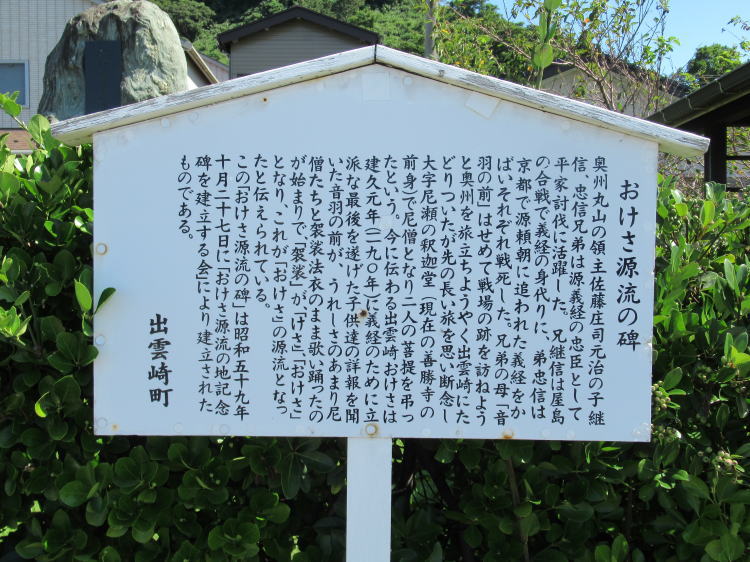 おけさ源流の碑
奥州丸山の領主佐藤庄司元治の子継
信、忠信兄弟は源義経の忠臣として
平家討伐に活躍した。兄継信は屋島
の合戦で義経の身代りに、弟忠信は
京都で源頼朝に追われた義経をか
ばいそれぞれ戦死した。兄弟の母「音
羽の前」はせめて戦場の跡を訪ねよう
と奥州を旅立ちようやく出雲崎にた
どりついたが先の長い旅を思い断念し
大字尼瀬の釈迦堂（現在の善勝寺の
前身）で尼僧となり二人の菩提を弔っ
たという。今に伝わる出雲崎おけさは
建久元年（一一九〇年）に義経のために立
派な最後を遂げた子供達の詳報を聞
いた音羽の前が、うれしさのあまり尼
僧たちと袈裟法衣のまま歌い踊ったの
が始まりで「袈裟」が、「けさ」、「おけさ」
となり、これが「おけさ」の源流となっ
たと伝えられている。
この「おけさ源流の碑」は昭和五十九年
十月二十七日に「おけさ源流の地記念
碑を建立する会」により建立された
ものである。
出雲崎町